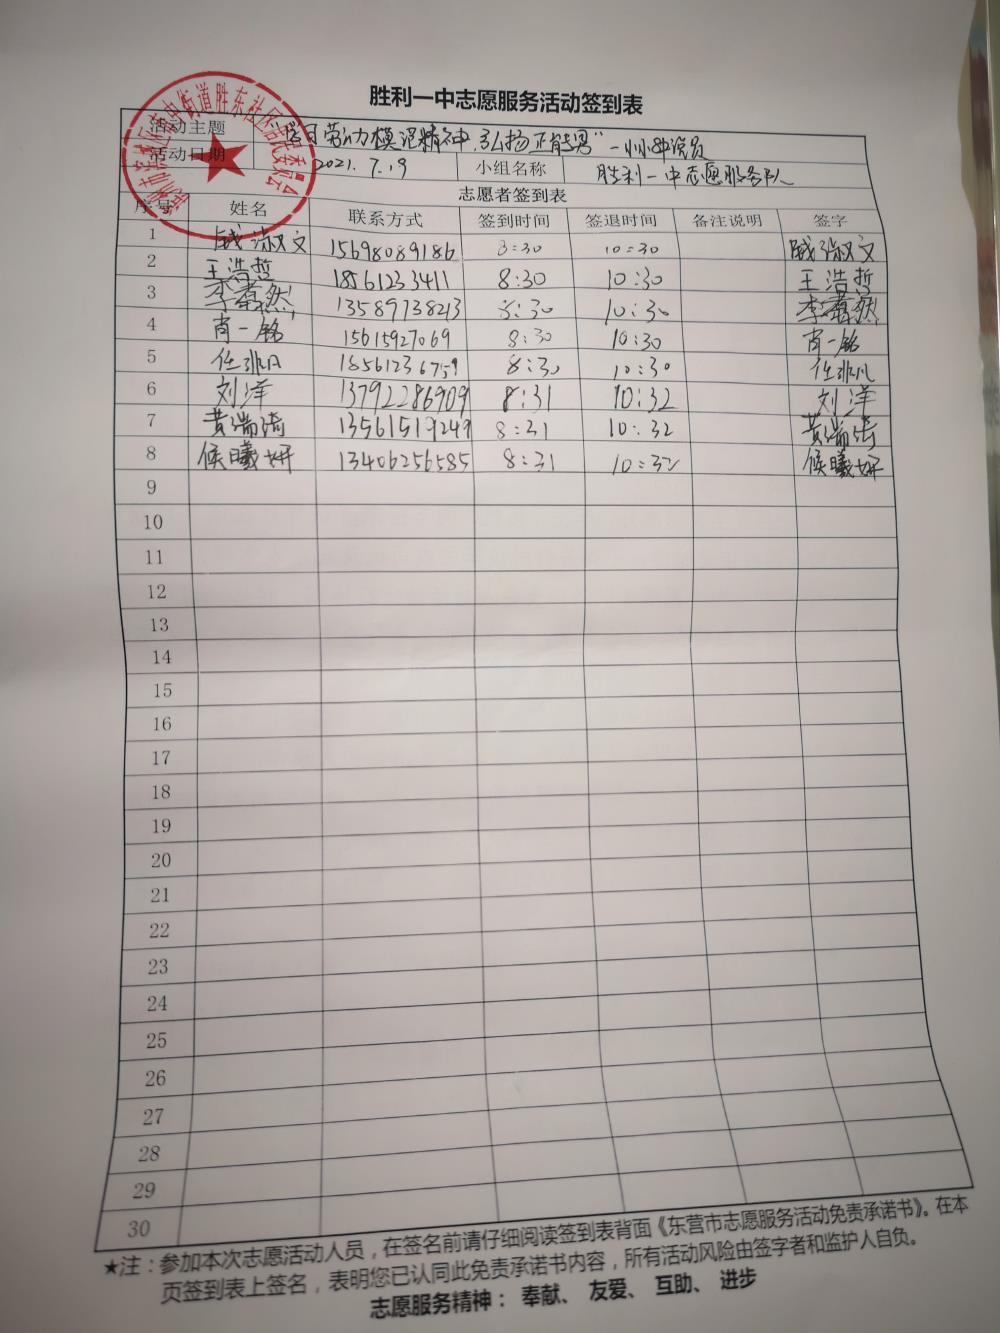 胜利一中志愿服务活动签到表
活动主题 "学习劳动模范精神,弘扬正能量"
活动日期 2021.7.19 小组名称 胜利一中志愿服务队
志愿者签到表
序号 姓名 联系方式 签到时间 签退时间 备注说明 签字
1 淑文 15698089186 8:30 10:30 淑文
2 王浩哲 18561233411 8:30 10:30 王浩哲
3 李 然 13589738213 8:30 10:30 李 然
4 肖一铭 15615927069 8:30 10:30 肖一铭
5 任非凡 18561236759 8:30 10:30 任非凡
6 刘洋 13792286909 8:31 10:32 刘洋
7 黄瑞琦 13561519249 8:31 10:32 黄瑞琦
8 侯曦妍 13406256585 8:31 10:32 侯曦妍
9
10
11
12
13
14
15
16
17
18
19
20
21
22
23
24
25
26
27
28
29
30
★注:参加本次志愿活动人员,在签名前请仔细阅读签到表背面《东营市志愿服务活动免责承诺书》。在本
页签到表上签名,表明您已认同此免责承诺书内容,所有活动风险由签字者和监护人自负。
志愿服务精神: 奉献、 友爱、 互助、 进步